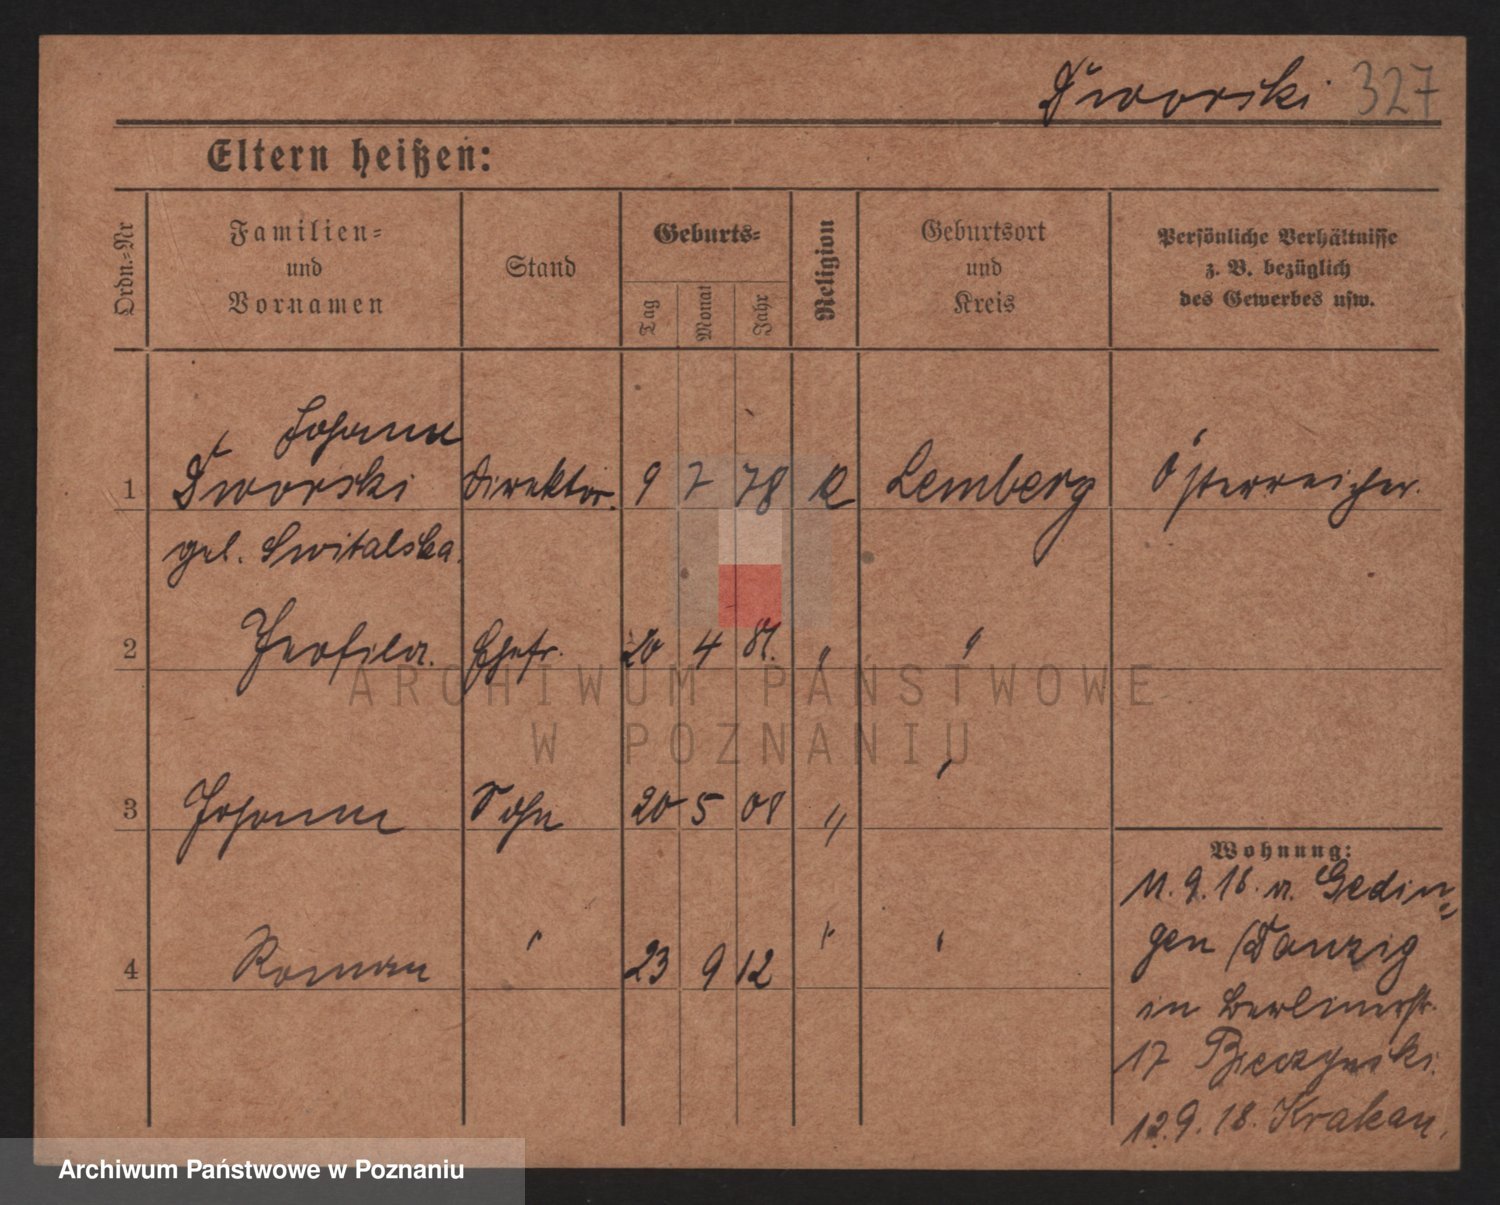 Dworski 327
Eltern heißen:
Ordn.-Nr
Familien-
und
Vornamen
Stand
Geburts-
Tag
Monat
Jahr
Religion
Geburtsort
und
Kreis
Persönliche Verhältnisse
z. B. bezüglich
des Gewerbes usw.
Johann
1 Dworski Direktor. 9 7 78 K Lemberg Österreicher.
geb. Switalska.
2 Ehefr. 20 4 81. " "
3 Johann Sohn 20 5 08 " "
4 Roman " 23 9 12 " "
Wohnung:
11.9.18. a. Gedin-
gen /Danzig
in Berlinerstr.
17
12.9.18. Krakau.
ARCHIWUM PAŃSTWOWE
W POZNANIU
Archiwum Państwowe w Poznaniu